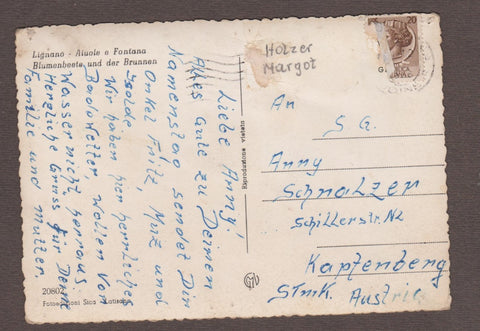 Lignano - Aiuole e Fontana
Blumenbeete und der Brunnen
Liebe Anny!
Alles Gute zu Deinem
Namenstag sendet Dir
Onkel Fritz, Mutz und
Wir haben hier herrliches
Badewetter. Wollen Vom
Wasser nicht heraus.
Herzliche Grüsse für Deine
Familie und Mutter
20802
Riproduzione vietata
Holzer
Margot
20
An
Anny
Schnalzer
Schillerstr. Nr.
Kapfenberg
STmK. Austria